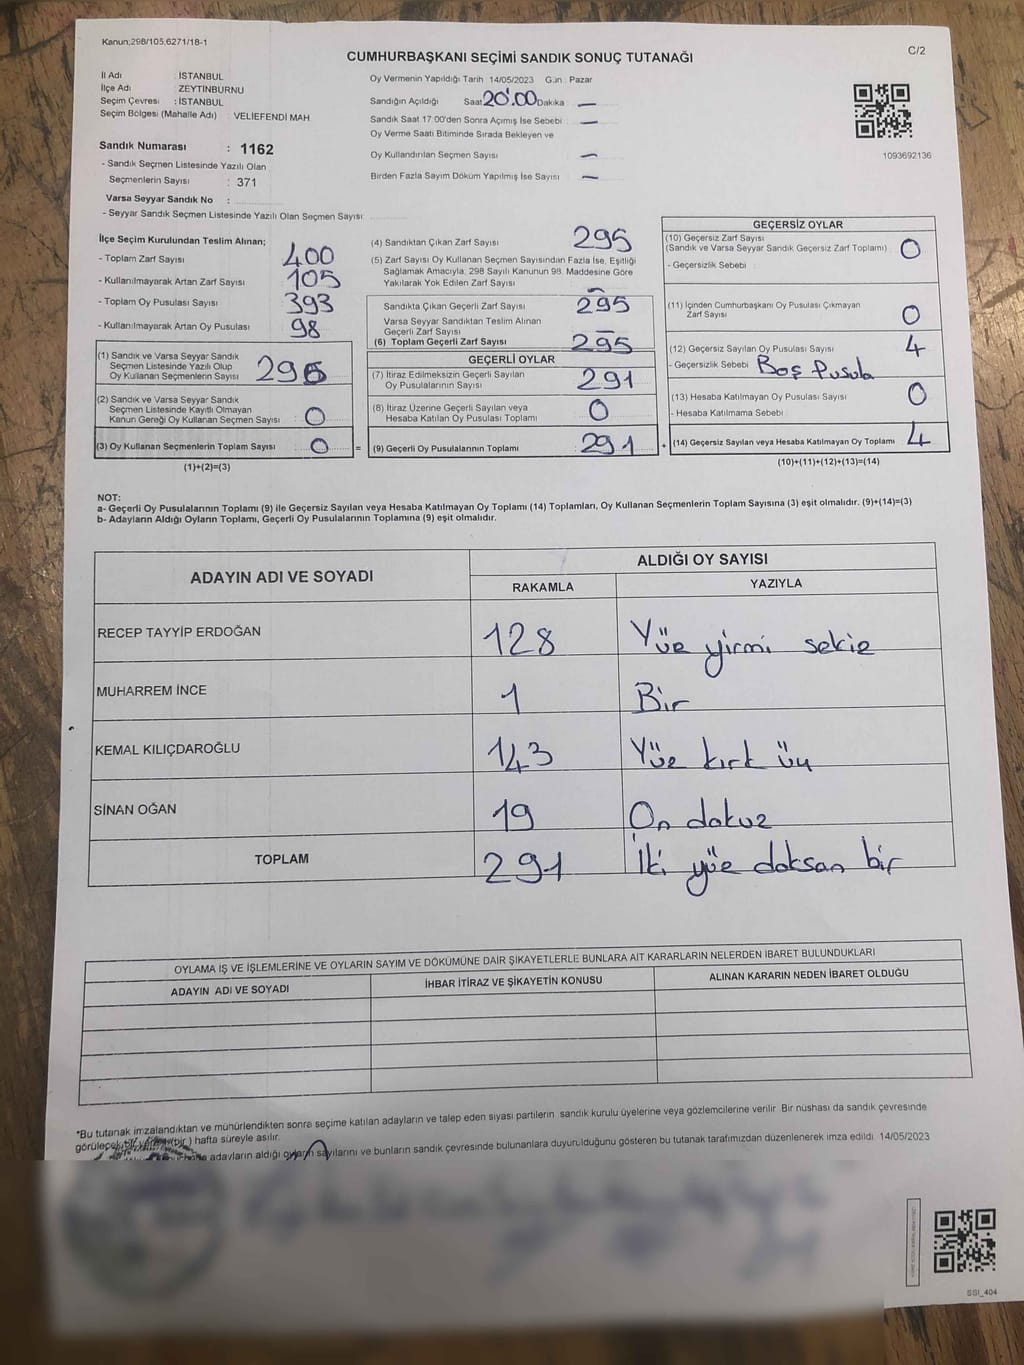 Kanun;298/105,6271/18-1
C/2
CUMHURBAŞKANI SEÇİMİ SANDIK SONUÇ TUTANAĞI
İl Adı : İSTANBUL
İlçe Adı : ZEYTİNBURNU
Seçim Çevresi : İSTANBUL
Seçim Bölgesi (Mahalle Adı) : VELİEFENDİ MAH.
Sandık Numarası : 1162
- Sandık Seçmen Listesinde Yazılı Olan
Seçmenlerin Sayısı : 371
Varsa Seyyar Sandık No :
- Seyyar Sandık Seçmen Listesinde Yazılı Olan Seçmen Sayısı:
Oy Vermenin Yapıldığı Tarih 14/05/2023 Gün : Pazar
Sandığın Açıldığı Saat 20:00 Dakika : —
Sandık Saat 17:00'den Sonra Açımış İse Sebebi : —
Oy Verme Saati Bitiminde Sırada Bekleyen ve
Oy Kullandırılan Seçmen Sayısı : —
Birden Fazla Sayım Döküm Yapılmış İse Sayısı : —
1093692136
İlçe Seçim Kurulundan Teslim Alınan;
- Toplam Zarf Sayısı : 400
- Kullanılmayarak Artan Zarf Sayısı : 105
- Toplam Oy Pusulası Sayısı : 393
- Kullanılmayarak Artan Oy Pusulası : 98
(1) Sandık ve Varsa Seyyar Sandık
Seçmen Listesinde Yazılı Olup
Oy Kullanan Seçmenlerin Sayısı : 295
(2) Sandık ve Varsa Seyyar Sandık
Seçmen Listesinde Kayıtlı Olmayan
Kanun Gereği Oy Kullanan Seçmen Sayısı : 0
(3) Oy Kullanan Seçmenlerin Toplam Sayısı : 0 =
(1)+(2)=(3)
(4) Sandıktan Çıkan Zarf Sayısı : 295
(5) Zarf Sayısı Oy Kullanan Seçmen Sayısından Fazla İse, Eşitliği
Sağlamak Amacıyla, 298 Sayılı Kanunun 98. Maddesine Göre
Yakılarak Yok Edilen Zarf Sayısı : —
Sandıkta Çıkan Geçerli Zarf Sayısı : 295
Varsa Seyyar Sandıktan Teslim Alınan
Geçerli Zarf Sayısı : —
(6) Toplam Geçerli Zarf Sayısı : 295
GEÇERLİ OYLAR
(7) İtiraz Edilmeksizin Geçerli Sayılan
Oy Pusulalarının Sayısı : 291
(8) İtiraz Üzerine Geçerli Sayılan veya
Hesaba Katılan Oy Pusulası Toplamı : 0
(9) Geçerli Oy Pusulalarının Toplamı : 291 +
GEÇERSİZ OYLAR
(10) Geçersiz Zarf Sayısı : 0
(Sandık ve Varsa Seyyar Sandık Geçersiz Zarf Toplamı)
- Geçersizlik Sebebi :
(11) İçinden Cumhurbaşkanı Oy Pusulası Çıkmayan
Zarf Sayısı : 0
(12) Geçersiz Sayılan Oy Pusulası Sayısı : 4
- Geçersizlik Sebebi : Boş Pusula
(13) Hesaba Katılmayan Oy Pusulası Sayısı : 0
- Hesaba Katılmama Sebebi :
(14) Geçersiz Sayılan veya Hesaba Katılmayan Oy Toplamı : 4
(10)+(11)+(12)+(13)=(14)
NOT:
a- Geçerli Oy Pusulalarının Toplamı (9) ile Geçersiz Sayılan veya Hesaba Katılmayan Oy Toplamı (14) Toplamları, Oy Kullanan Seçmenlerin Toplam Sayısına (3) eşit olmalıdır. (9)+(14)=(3)
b- Adayların Aldığı Oyların Toplamı, Geçerli Oy Pusulalarının Toplamına (9) eşit olmalıdır.
ADAYIN ADI VE SOYADI
ALDIĞI OY SAYISI
RAKAMLA YAZIYLA
RECEP TAYYİP ERDOĞAN 128 Yüz yirmi sekiz
MUHARREM İNCE 1 Bir
KEMAL KILIÇDAROĞLU 143 Yüz kırk üç
SİNAN OĞAN 19 On dokuz
TOPLAM 291 İki yüz doksan bir
OYLAMA İŞ VE İŞLEMLERİNE VE OYLARIN SAYIM VE DÖKÜMÜNE DAİR ŞİKAYETLERLE BUNLARA AİT KARARLARIN NELERDEN İBARET BULUNDUKLARI
ADAYIN ADI VE SOYADI İHBAR İTİRAZ VE ŞİKAYETİN KONUSU ALINAN KARARIN NEDEN İBARET OLDUĞU
*Bu tutanak imzalandıktan ve mühürlendikten sonra seçime katılan adayların ve talep eden siyasi partilerin sandık kurulu üyelerine veya gözlemcilerine verilir. Bir nüshası da sandık çevresinde
(bir) hafta süreyle asılır.
adayların aldığı oyların sayılarını ve bunların sandık çevresinde bulunanlara duyurulduğunu gösteren bu tutanak tarafımızdan düzenlenerek imza edildi. 14/05/2023
SSI_404